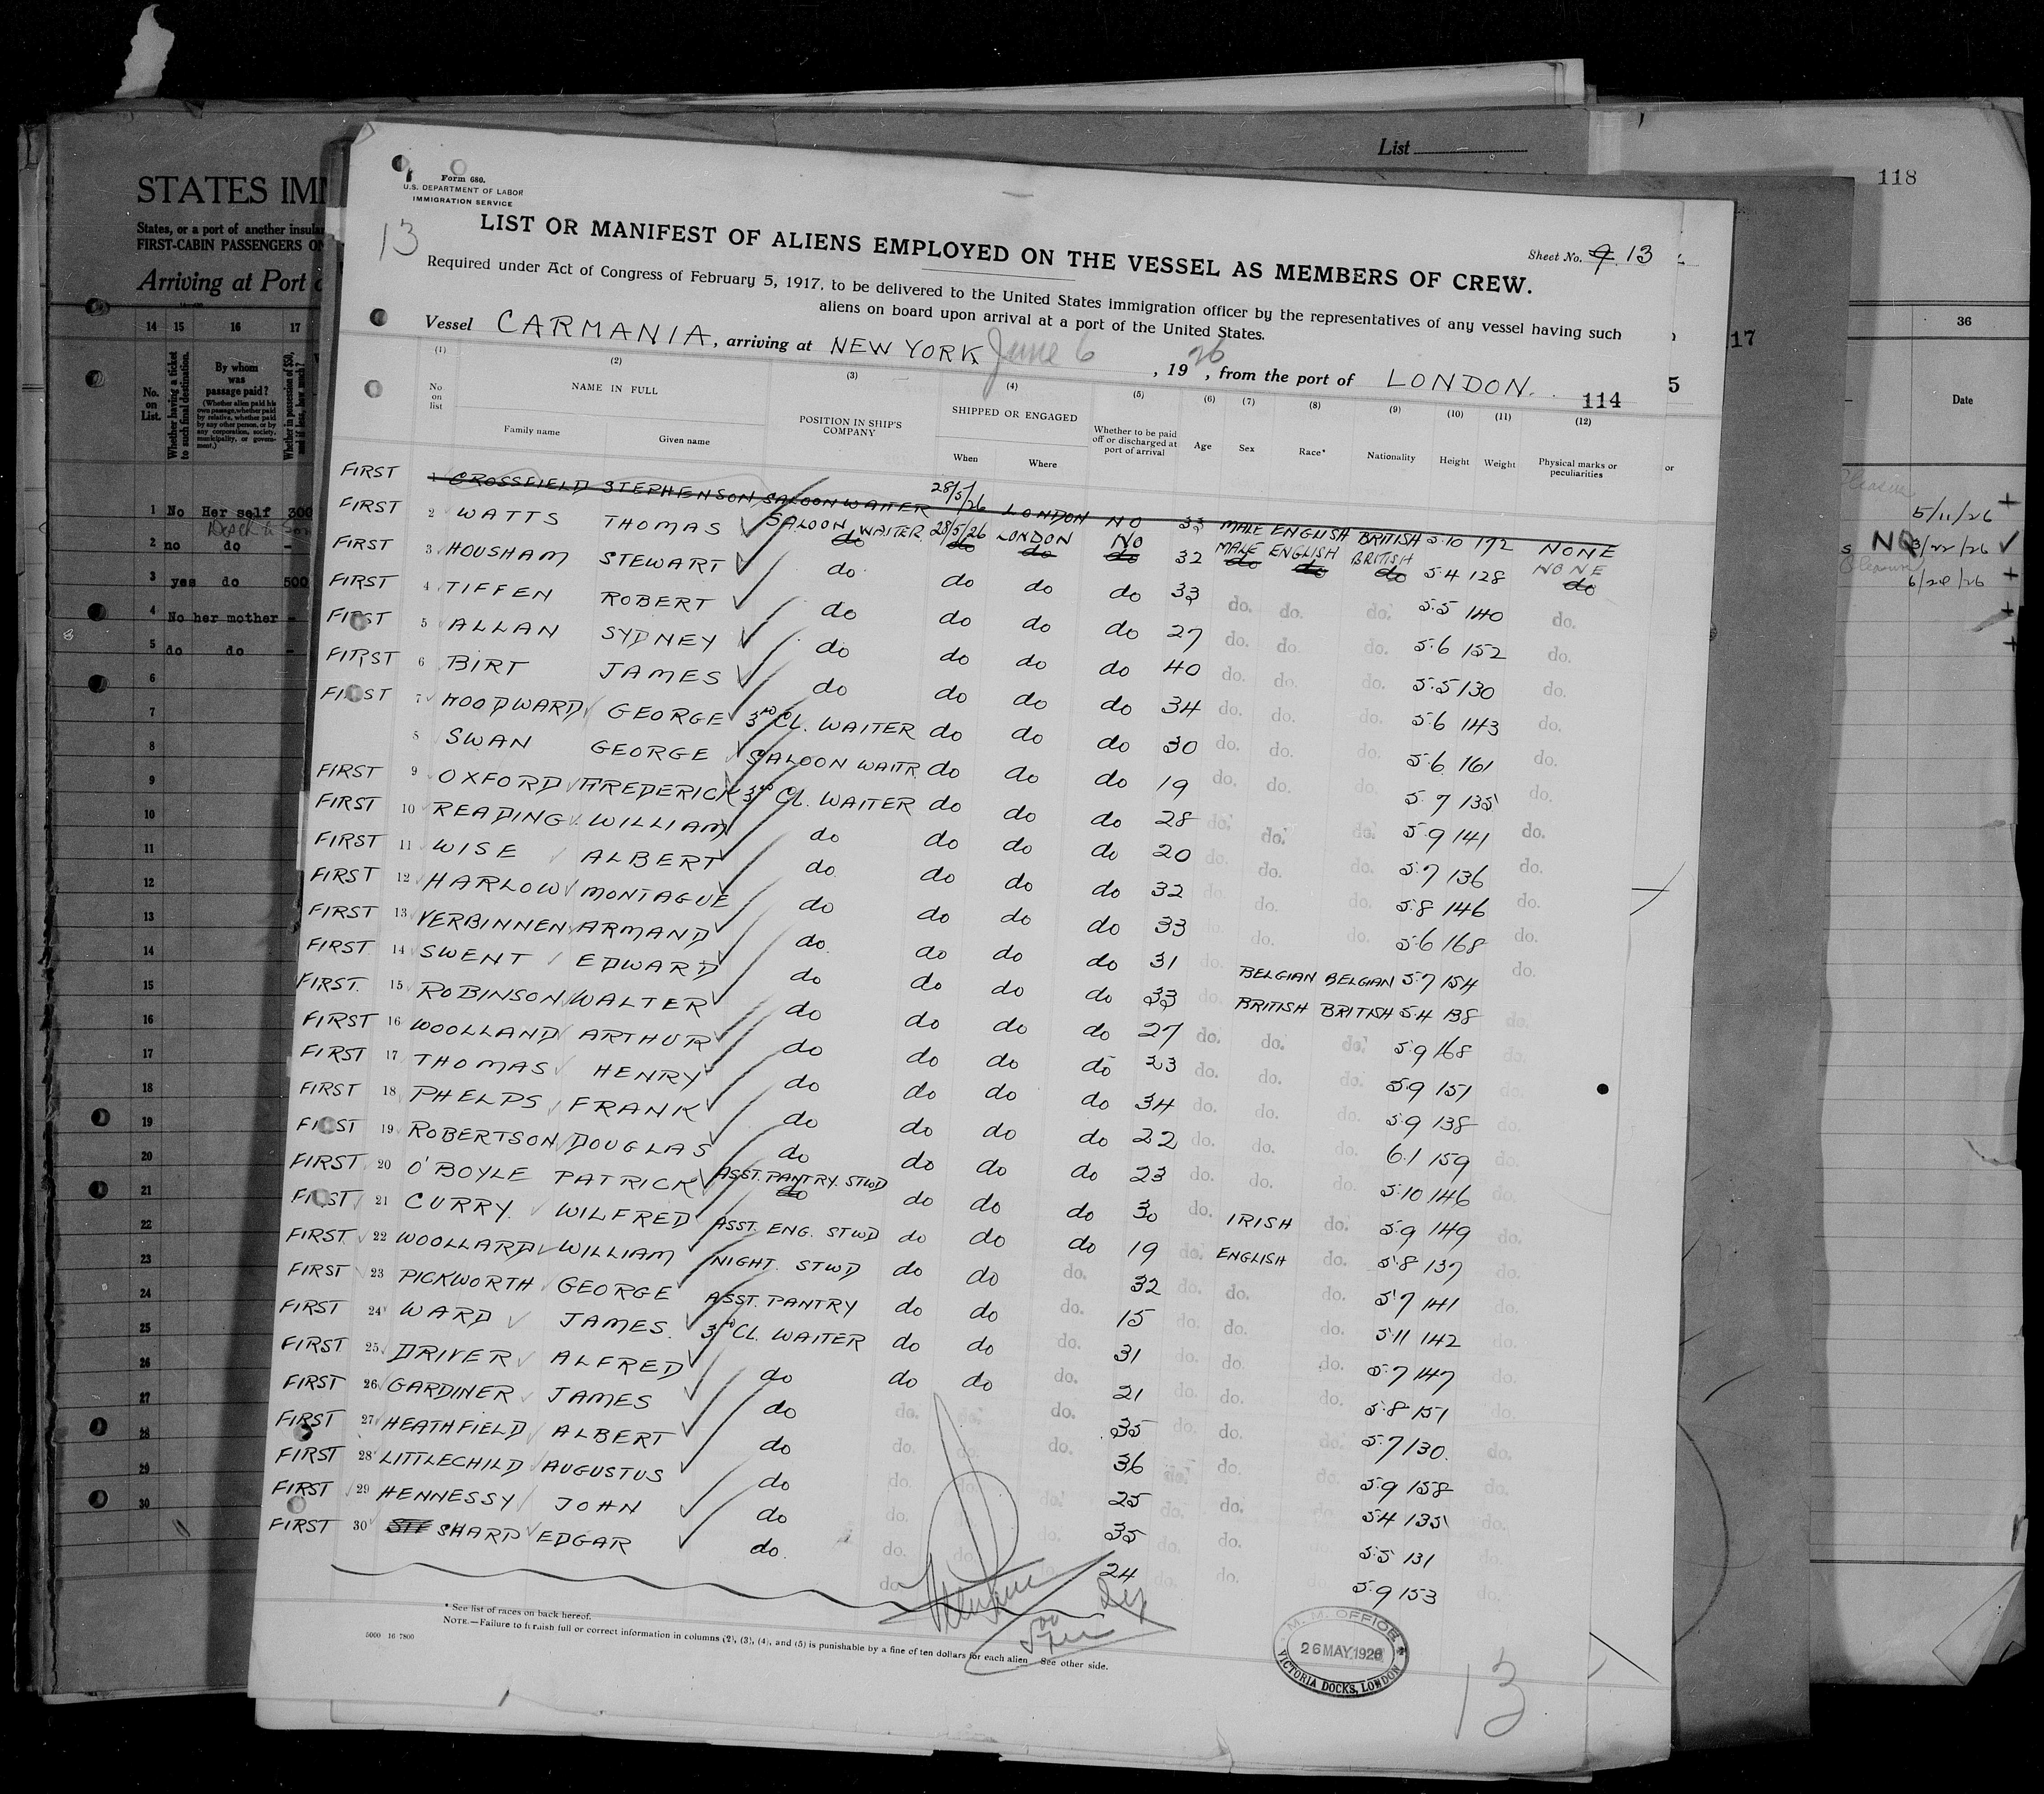 118
List
STATES IMM
States, or a port of another insular
FIRST-CABIN PASSENGERS ON
Arriving at Port o
14 15 16 17
No. on List.
Whether having a ticket to such final destination.
By whom was passage paid?
(Whether alien paid his own passage, whether paid by relative, whether paid by any other person, or by any corporation, society, municipality, or government.)
Whether in possession of $50, and if less, how much?
1 No Her self 300
2 no do -
3 yes do 500
4 No her mother -
5 do do -
6
7
8
9
10
11
12
13
14
15
16
17
18
19
20
21
22
23
24
25
26
27
28
29
30
Form 680.
U.S. DEPARTMENT OF LABOR
IMMIGRATION SERVICE
13
LIST OR MANIFEST OF ALIENS EMPLOYED ON THE VESSEL AS MEMBERS OF CREW.
Sheet No. 9 13
Required under Act of Congress of February 5, 1917, to be delivered to the United States immigration officer by the representatives of any vessel having such
aliens on board upon arrival at a port of the United States.
Vessel CARMANIA, arriving at NEW YORK June 6, 1926, from the port of LONDON.
114
(1) (2) (3) (4) (5) (6) (7) (8) (9) (10) (11) (12)
No on list
NAME IN FULL
Family name Given name
POSITION IN SHIP'S COMPANY
SHIPPED OR ENGAGED
When Where
Whether to be paid off or discharged at port of arrival
Age Sex Race* Nationality Height Weight Physical marks or peculiarities
FIRST 1 CROSSFIELD STEPHENSON SALOON WAITER 28/5/26 LONDON NO 33 MALE ENGLISH BRITISH 5.10 172 NONE
FIRST 2 WATTS THOMAS SALOON WAITER 28/5/26 LONDON NO 32 MALE ENGLISH BRITISH 5.4 128 NONE
FIRST 3 HOUSHAM STEWART do do do do 33 do. do. do. 5.5 140 do.
FIRST 4 TIFFEN ROBERT do do do do 27 do. do. do. 5.6 152 do.
FIRST 5 ALLAN SYDNEY do do do do 40 do. do. do. 5.5 130 do.
FIRST 6 BIRT JAMES do do do do 34 do. do. do. 5.6 143 do.
FIRST 7 WOODWARD GEORGE 3RD CL. WAITER do do do 30 do. do. do. 5.6 161 do.
8 SWAN GEORGE SALOON WAITR do do do 19 do. do. do. 5.7 135 do.
FIRST 9 OXFORD FREDERICK 3RD CL. WAITER do do do 28 do. do. do. 5.9 141 do.
FIRST 10 READING WILLIAM do do do do 20 do. do. do. 5.7 136 do.
FIRST 11 WISE ALBERT do do do do 32 do. do. do. 5.8 146 do.
FIRST 12 HARLOW MONTAGUE do do do do 33 do. do. do. 5.6 168 do.
FIRST 13 VERBINNEN ARMAND do do do do 31 do. BELGIAN BELGIAN 5.7 154 do.
FIRST 14 SWENT EDWARD do do do do 33 do. BRITISH BRITISH 5.4 138 do.
FIRST. 15 ROBINSON WALTER do do do do 27 do. do. do. 5.9 168 do.
FIRST 16 WOOLLAND ARTHUR do do do do 23 do. do. do. 5.9 151 do.
FIRST 17 THOMAS HENRY do do do do 34 do. do. do. 5.9 138 do.
FIRST 18 PHELPS FRANK do do do do 22 do. do. do. 6.1 159 do.
FIRST 19 ROBERTSON DOUGLAS do do do do 23 do. do. do. 5.10 146 do.
FIRST 20 O'BOYLE PATRICK ASST. PANTRY. STWD do do do 30 do. IRISH do. 5.9 149 do.
FIRST 21 CURRY WILFRED ASST. ENG. STWD do do do 19 do. ENGLISH do. 5.8 137 do.
FIRST 22 WOOLLARD WILLIAM NIGHT. STWD do do do. 32 do. do. do. 5.7 141 do.
FIRST 23 PICKWORTH GEORGE ASST. PANTRY do do do. 15 do. do. do. 5.11 142 do.
FIRST 24 WARD JAMES. 3RD CL. WAITER do do do. 31 do. do. do. 5.7 147 do.
FIRST 25 DRIVER ALFRED do do do do. 21 do. do. do. 5.8 151 do.
FIRST 26 GARDINER JAMES do do. do. do. 35 do. do. do. 5.7 130. do.
FIRST 27 HEATHFIELD ALBERT do do. do. do. 36 do. do. do. 5.9 158 do.
FIRST 28 LITTLECHILD AUGUSTUS do do. do. do. 25 do. do. do. 5.4 135 do.
FIRST 29 HENNESSY JOHN do do. do. do. 35 do. do. 5.5 131 do.
FIRST 30 SHARP EDGAR do. do. do. do. 24 do. do. 5.9 153 do.
* See list of races on back hereof.
NOTE.—Failure to furnish full or correct information in columns (2), (3), (4), and (5) is punishable by a fine of ten dollars for each alien. See other side.
5000 16 7800
M. M. OFFICE
26 MAY 1926
VICTORIA DOCKS, LONDON
13
5
17
or
36
Date
5/11/26
NO 3/22/26
6/28/26